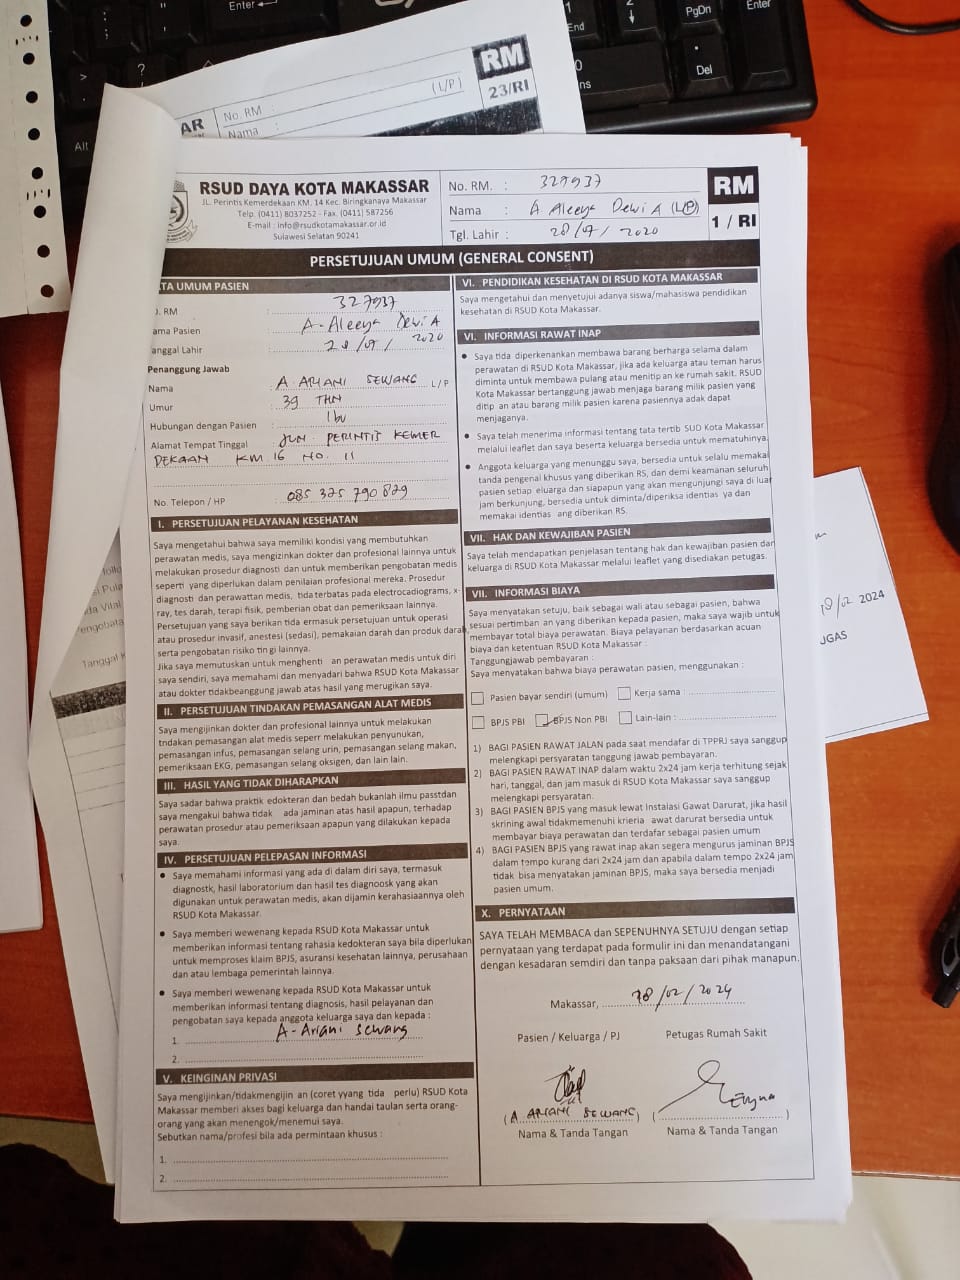 Enter
PgDn
Enter
End
Del
Alt
?
>
AR
No. RM :
(L/P)
RM
Nama :
23/RI
RSUD DAYA KOTA MAKASSAR
JL. Perintis Kemerdekaan KM. 14 Kec. Biringkanaya Makassar
Telp. (0411) 8037252 - Fax. (0411) 587256
E-mail : info@rsudkotamakassar.or.id
Sulawesi Selatan 90241
No. RM. : 327937
Nama : A Aleeya Dewi A (L/P)
Tgl. Lahir : 28/07/2020
RM
1 / RI
PERSETUJUAN UMUM (GENERAL CONSENT)
TA UMUM PASIEN
. RM : 327937
ama Pasien : A-Aleeya Dewi A
anggal Lahir : 28/07/2020
Penanggung Jawab
Nama : A ARIANI SEWANG L/P
Umur : 39 THN
Hubungan dengan Pasien : Ibu
Alamat Tempat Tinggal : JLN PERINTIS KEMER
DEKAAN KM 16 NO. 11
No. Telepon / HP : 085 325 790 829
I. PERSETUJUAN PELAYANAN KESEHATAN
Saya mengetahui bahwa saya memiliki kondisi yang membutuhkan
perawatan medis, saya mengizinkan dokter dan profesional lainnya untuk
melakukan prosedur diagnosti dan untuk memberikan pengobatan medis
seperti yang diperlukan dalam penilaian profesional mereka. Prosedur
diagnosti dan perawattan medis, tida terbatas pada electrocardiograms, x-
ray, tes darah, terapi fisik, pemberian obat dan pemeriksaan lainnya.
Persetujuan yang saya berikan tida ermasuk persetujuan untuk operasi
atau prosedur invasif, anestesi (sedasi), pemakaian darah dan produk darah
serta pengobatan risiko tin gi lainnya.
Jika saya memutuskan untuk menghenti an perawatan medis untuk diri
saya sendiri, saya memahami dan menyadari bahwa RSUD Kota Makassar
atau dokter tidakbeanggung jawab atas hasil yang merugikan saya.
II. PERSETUJUAN TINDAKAN PEMASANGAN ALAT MEDIS
Saya mengijinkan dokter dan profesional lainnya untuk melakukan
tndakan pemasangan alat medis seperr melakukan penyunukan,
pemasangan infus, pemasangan selang urin, pemasangan selang makan,
pemeriksaan EKG, pemasangan selang oksigen, dan lain lain.
III. HASIL YANG TIDAK DIHARAPKAN
Saya sadar bahwa praktik edokteran dan bedah bukanlah ilmu passtdan
saya mengakui bahwa tidak ada jaminan atas hasil apapun, terhadap
perawatan prosedur atau pemeriksaan apapun yang dilakukan kepada
saya.
IV. PERSETUJUAN PELEPASAN INFORMASI
• Saya memahami informasi yang ada di dalam diri saya, termasuk
diagnostk, hasil laboratorium dan hasil tes diagnoosk yang akan
digunakan untuk perawatan medis, akan dijamin kerahasiaannya oleh
RSUD Kota Makassar.
• Saya memberi wewenang kepada RSUD Kota Makassar untuk
memberikan informasi tentang rahasia kedokteran saya bila diperlukan
untuk memproses klaim BPJS, asuransi kesehatan lainnya, perusahaan
dan atau lembaga pemerintah lainnya.
• Saya memberi wewenang kepada RSUD Kota Makassar untuk
memberikan informasi tentang diagnosis, hasil pelayanan dan
pengobatan saya kepada anggota keluarga saya dan kepada :
1. A-Ariani Sewang
2.
V. KEINGINAN PRIVASI
Saya mengijinkan/tidakmengijin an (coret yyang tida perlu) RSUD Kota
Makassar memberi akses bagi keluarga dan handai taulan serta orang-
orang yang akan menengok/menemui saya.
Sebutkan nama/profesi bila ada permintaan khusus :
1.
2.
VI. PENDIDIKAN KESEHATAN DI RSUD KOTA MAKASSAR
Saya mengetahui dan menyetujui adanya siswa/mahasiswa pendidikan
kesehatan di RSUD Kota Makassar.
VI. INFORMASI RAWAT INAP
• Saya tida diperkenankan membawa barang berharga selama dalam
perawatan di RSUD Kota Makassar, jika ada keluarga atau teman harus
diminta untuk membawa pulang atau menitip an ke rumah sakit. RSUD
Kota Makassar bertanggung jawab menjaga barang milik pasien yang
ditip an atau barang milik pasien karena pasiennya adak dapat
menjaganya.
• Saya telah menerima informasi tentang tata tertib SUD Kota Makassar
melalui leaflet dan saya beserta keluarga bersedia untuk mematuhinya.
• Anggota keluarga yang menunggu saya, bersedia untuk selalu memakai
tanda pengenal khusus yang diberikan RS, dan demi keamanan seluruh
pasien setiap eluarga dan siapapun yang akan mengunjungi saya di luar
jam berkunjung, bersedia untuk diminta/diperiksa identias ya dan
memakai identias ang diberikan RS.
VII. HAK DAN KEWAJIBAN PASIEN
Saya telah mendapatkan penjelasan tentang hak dan kewajiban pasien dan
keluarga di RSUD Kota Makassar melalui leaflet yang disediakan petugas.
VII. INFORMASI BIAYA
Saya menyatakan setuju, baik sebagai wali atau sebagai pasien, bahwa
sesuai pertimban an yang diberikan kepada pasien, maka saya wajib untuk
membayar total biaya perawatan. Biaya pelayanan berdasarkan acuan
biaya dan ketentuan RSUD Kota Makassar :
Tanggungjawab pembayaran :
Saya menyatakan bahwa biaya perawatan pasien, menggunakan :
Pasien bayar sendiri (umum) Kerja sama :
BPJS PBI BPJS Non PBI Lain-lain :
1) BAGI PASIEN RAWAT JALAN pada saat mendafar di TPPRJ saya sanggup
melengkapi persyaratan tanggung jawab pembayaran.
2) BAGI PASIEN RAWAT INAP dalam waktu 2x24 jam kerja terhitung sejak
hari, tanggal, dan jam masuk di RSUD Kota Makassar saya sanggup
melengkapi persyaratan.
3) BAGI PASIEN BPJS yang masuk lewat Instalasi Gawat Darurat, jika hasil
skrining awal tidakmemenuhi krieria awat darurat bersedia untuk
membayar biaya perawatan dan terdafar sebagai pasien umum
4) BAGI PASIEN BPJS yang rawat inap akan segera mengurus jaminan BPJS
dalam tempo kurang dari 2x24 jam dan apabila dalam tempo 2x24 jam
tidak bisa menyatakan jaminan BPJS, maka saya bersedia menjadi
pasien umum.
X. PERNYATAAN
SAYA TELAH MEMBACA dan SEPENUHNYA SETUJU dengan setiap
pernyataan yang terdapat pada formulir ini dan menandatangani
dengan kesadaran semdiri dan tanpa paksaan dari pihak manapun.
Makassar, 28/02/2024
Pasien / Keluarga / PJ Petugas Rumah Sakit
(A ARIANI SEWANG) ( )
Nama & Tanda Tangan Nama & Tanda Tangan
/02 2024
UGAS
da Vital
engobata
Tanggal K